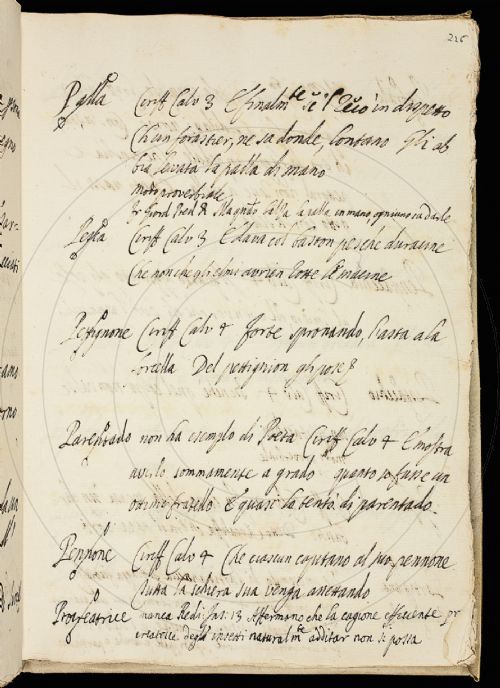 226
Palla Ciriff Calv 3 E finalm.te in dispetto
Ch'un forastier, ne sa donde, lontano Gli ab
bia levata la palla di mano
modo proverbiale
la palla in mano ogniuno sa darle
Pesca Ciriff Calv 3 E dava col baston pesche duracine
Che non che gli elmi avrien rotte le macine
Pettignone Ciriff Calv 4 forte spronando, l'asta a la
forcella Del pettignon gli pose
Parentado non ha esempio di Poeta Ciriff Calv 4 E mostra
averlo sommamente a grado quanto se fusse un
ottimo fratello E quasi la tentò di parentado
Pennone Ciriff Calv 4 Che ciascun capitano al suo pennone
tutta la schiera sua venga assettando
Procreatrice manca Redi Ins: 13 Affermano che la cagione efficiente pr
creatrice degl'insetti naturalm.te additar non si possa